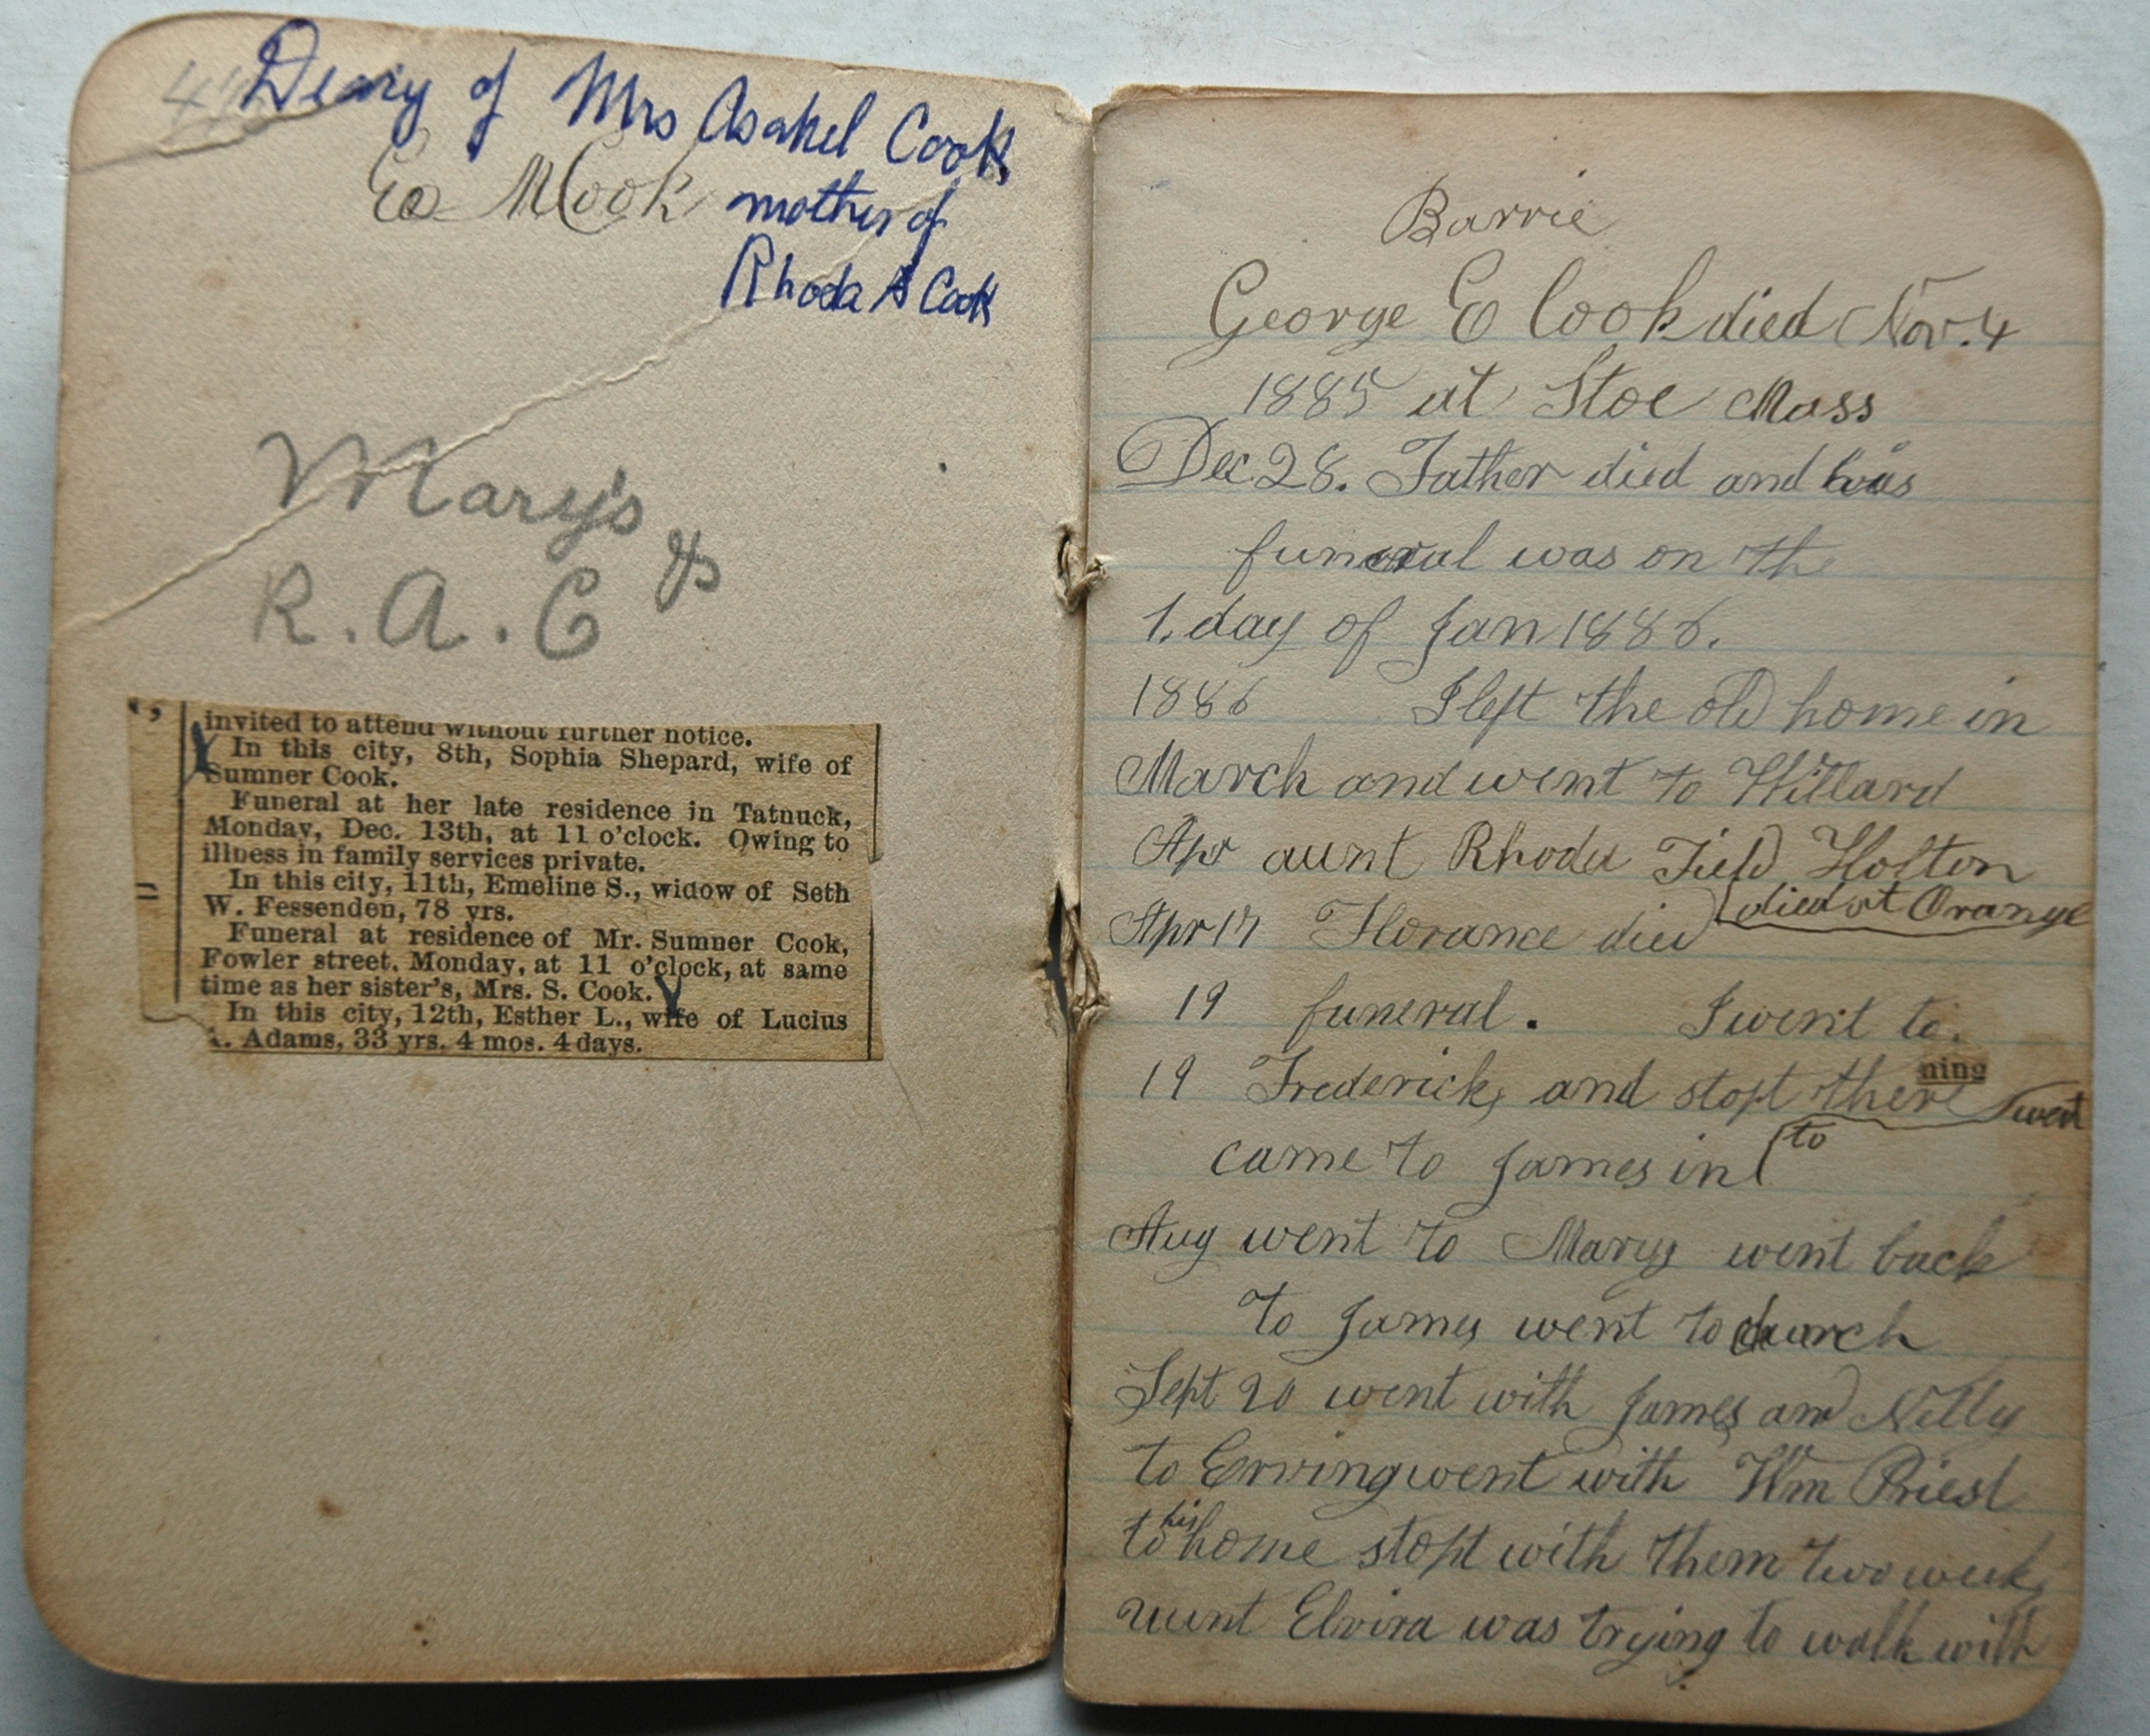 Deary of Mrs Asahel Cook
Eo M Cook mother of
Rhoda A Cook
Mary's
&
R. A. C
invited to attend without further notice.
In this city, 8th, Sophia Shepard, wife of
Sumner Cook.
Funeral at her late residence in Tatnuck,
Monday, Dec. 13th, at 11 o'clock. Owing to
illness in family services private.
In this city, 11th, Emeline S., widow of Seth
W. Fessenden, 78 yrs.
Funeral at residence of Mr. Sumner Cook,
Fowler street, Monday, at 11 o'clock, at same
time as her sister's, Mrs. S. Cook.
In this city, 12th, Esther L., wife of Lucius
A. Adams, 33 yrs. 4 mos. 4 days.
Barrie
George E Cook died Nov. 4
1885 at Stoe Mass
Dec 28. Father died and his
funeral was on the
1. day of Jan 1886.
1886 I left the old home in
March and went to Willard
Apr aunt Rhoda Field Holton
died at Orange
Apr 17 Florance died
19 funeral. I went to
ning
19 Fredericks and stopt there went
came to James in to
Aug went to Marys went back
to James went to church
Sept 20 went with James and Nelly
to Erving went with Wm Priest
to his home stopt with them two weeks
aunt Elvira was trying to walk with